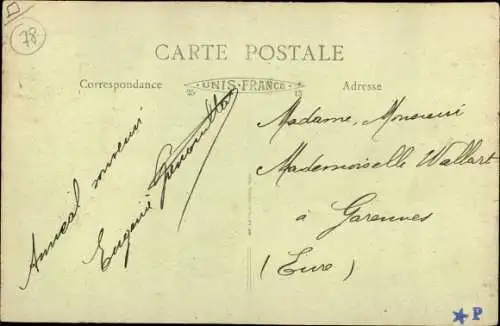 78
CARTE POSTALE
Correspondance
UNIS-FRANCE
Adresse
Amical souvenir
Eugénie
Madame, Monsieur
Mademoiselle Wallart
à Garennes
(Eure)
P